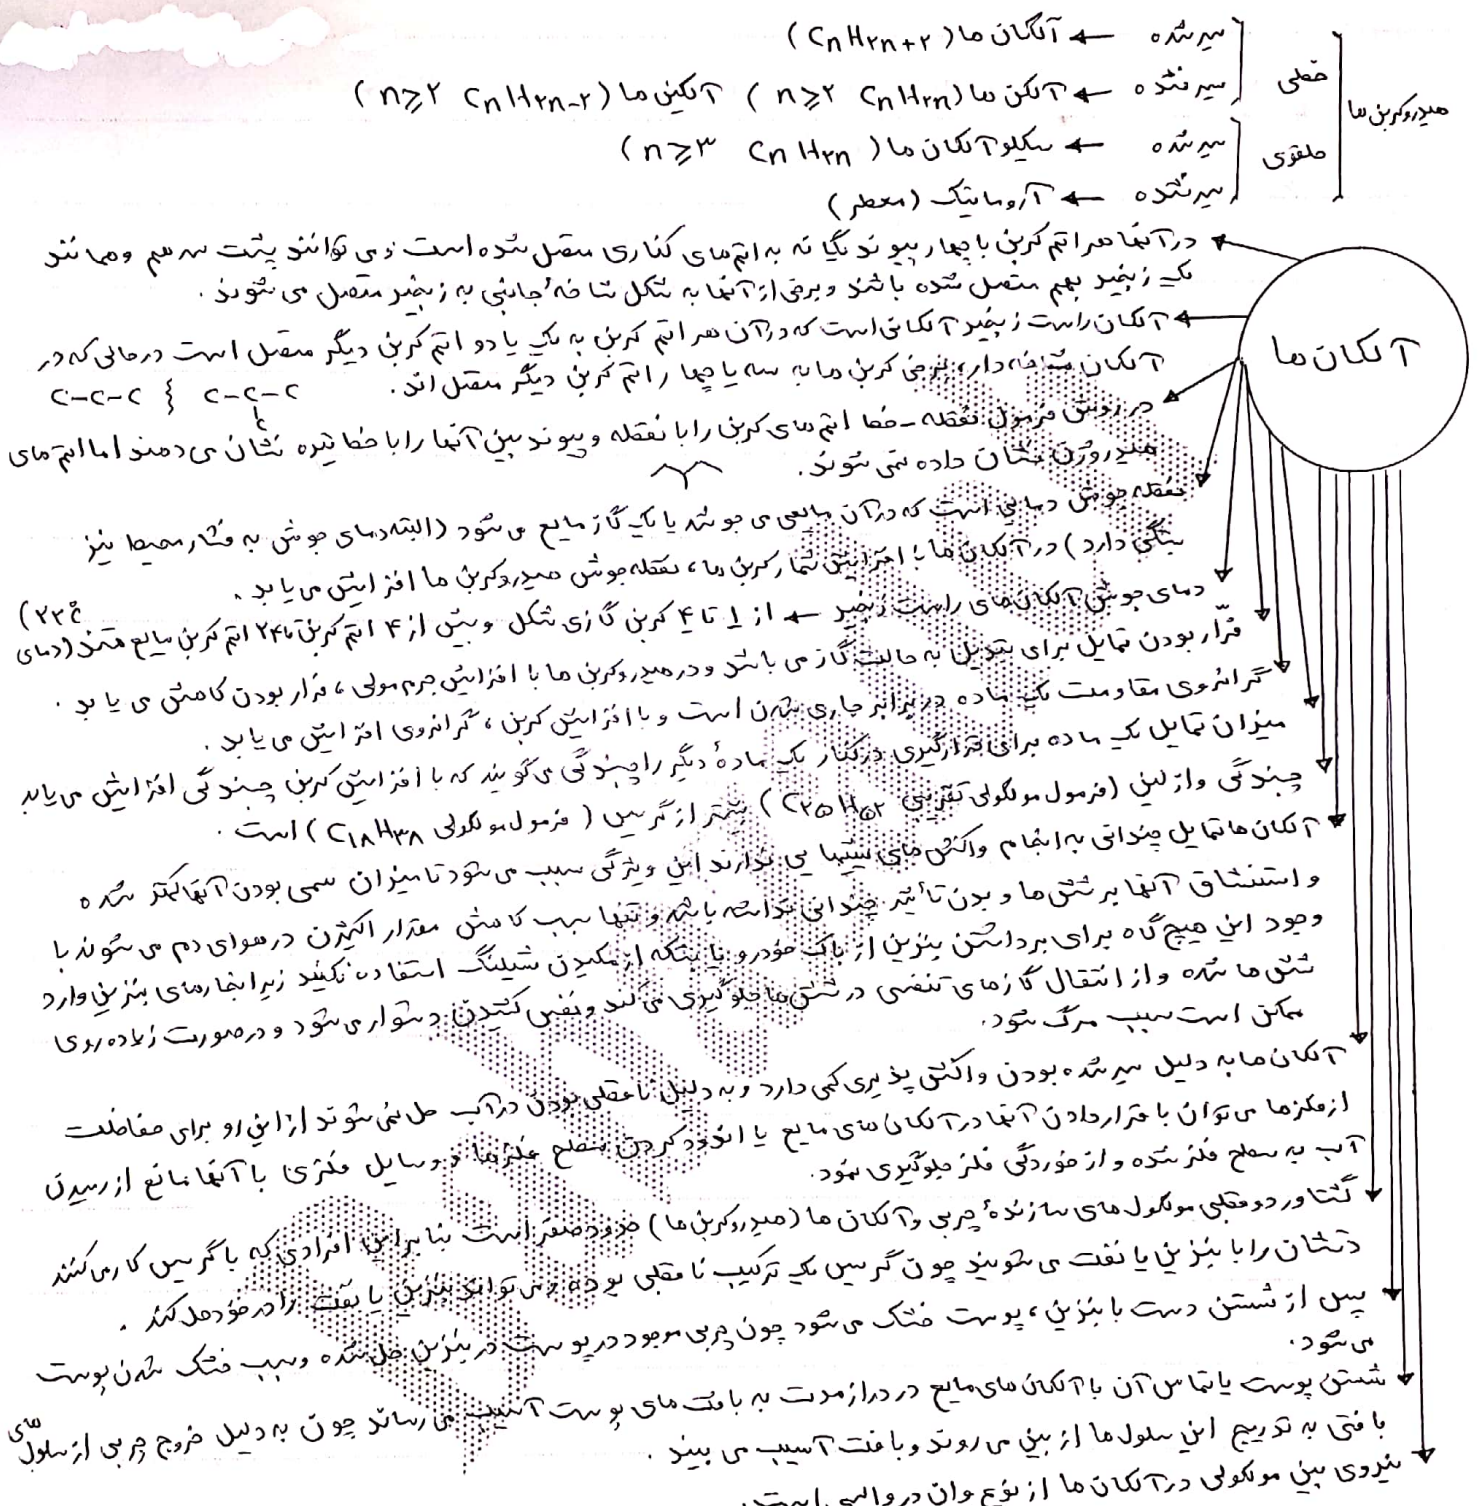 هیدروکربن ها
خطی
سیر شده ← آلکان ها (CnH۲n+۲)
سیر نشده ← آلکن ها (n≥۲ CnH۲n) آلکین ها (n≥۲ CnH۲n-۲)
حلقوی
سیر شده ← سیکلوآلکان ها (n≥۳ CnH۲n)
سیر نشده ← آروماتیک (معطر)
آلکان ها
در آنها هر اتم کربن با چهار پیوند یگانه به اتم های کناری متصل شده است و می توانند پشت سر هم و همانند
یک زنجیر بهم متصل شده باشند و برخی از آنها به شکل شاخهٔ جانبی به زنجیر متصل می شوند.
آلکان راست زنجیر آلکانی است که در آن هر اتم کربن به یک یا دو اتم کربن دیگر متصل است در حالی که در
آلکان شاخه دار، برخی کربن ها به سه یا چهار اتم کربن دیگر متصل اند. C-C-C } C-C-C
C
در روش فرمول نقطه-خط اتم های کربن را با نقطه و پیوند بین آنها را با خط تیره نشان می دهند اما اتم های
هیدروژن نشان داده نمی شوند.
نقطه جوش دمایی است که در آن مایعی می جوشد یا یک گاز مایع می شود (البته دمای جوش به فشار محیط نیز
بستگی دارد) در آلکان ها با افزایش شمار کربن ها، نقطه جوش هیدروکربن ها افزایش می یابد.
دمای جوش آلکان های راست زنجیر ← از ۱ تا ۴ کربن گازی شکل و بیش از ۴ اتم کربن تا ۲۴ اتم کربن مایع هستند (دمای ۲۲°C)
فرّار بودن تمایل برای تبدیل به حالت گاز می باشد و در هیدروکربن ها با افزایش جرم مولی، فرار بودن کاهش می یابد.
گرانروی مقاومت یک ماده در برابر جاری شدن است و با افزایش کربن، گرانروی افزایش می یابد.
میزان تمایل یک ماده برای قرارگیری در کنار یک مادهٔ دیگر را چسبندگی می گویند که با افزایش کربن چسبندگی افزایش می یابد
چسبندگی وازلین (فرمول مولکولی تقریبی C۲۵H۵۲) بیشتر از گریس (فرمول مولکولی C۱۸H۳۸) است.
آلکان ها تمایل چندانی به انجام واکنش های شیمیایی ندارند این ویژگی سبب می شود تا میزان سمی بودن آنها کمتر شده
و استنشاق آنها بر شش ها و بدن تأثیر چندانی نداشته باشد و تنها سبب کاهش مقدار اکسیژن در هوای دم می شوند با
وجود این هیچ گاه برای برداشتن بنزین از باک خودرو یا بشکه از مکیدن شیلنگ استفاده نکنید زیرا بخارهای بنزین وارد
شش ها شده و از انتقال گازهای تنفسی در شش ها جلوگیری می کند و نفس کشیدن دشوار می شود و در صورت زیاده روی
ممکن است سبب مرگ شود.
آلکان ها به دلیل سیر شده بودن واکنش پذیری کمی دارد و به دلیل ناقطبی بودن در آب حل نمی شوند از این رو برای حفاظت
از فلزها می توان با قرار دادن آنها در آلکان های مایع یا اندود کردن سطح فلزها و وسایل فلزی با آنها مانع از رسیدن
آب به سطح فلز شده و از خوردگی فلز جلوگیری نمود.
گشتاور دوقطبی مولکول های سازندهٔ چربی و آلکان ها (هیدروکربن ها) حدود صفر است بنابراین افرادی که با گریس کار می کنند
دستشان را با بنزین یا نفت می شویند چون گریس یک ترکیب ناقطبی بوده و می تواند بنزین یا نفت را در خود حل کند.
پس از شستن دست با بنزین، پوست خشک می شود چون چربی موجود در پوست در بنزین حل شده و سبب خشک شدن پوست
می شود.
شستن پوست یا تماس آن با آلکان های مایع در دراز مدت به بافت های پوست آسیب می رساند چون به دلیل خروج چربی از سلول های
بافتی به تدریج این سلول ها از بین می روند و بافت آسیب می بیند.
نیروی بین مولکولی در آلکان ها از نوع وان دروالسی است.